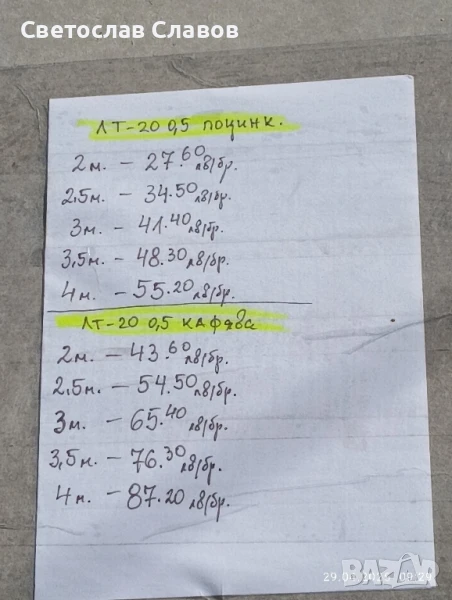 Светослав Славов
ЛТ-20 0,5 поцинк.
2м. - 27.60 лв/бр.
2,5м - 34.50 лв/бр.
3м - 41.40 лв/бр.
3,5м - 48.30 лв/бр.
4м - 55.20 лв/бр.
ЛТ-20 0.5 кафява
2м. - 43.60 лв/бр.
2.5м. - 54.50 лв/бр.
3м. - 65.40 лв/бр.
3,5м. - 76.30 лв/бр.
4м - 87.20 лв/бр.
BAZAR